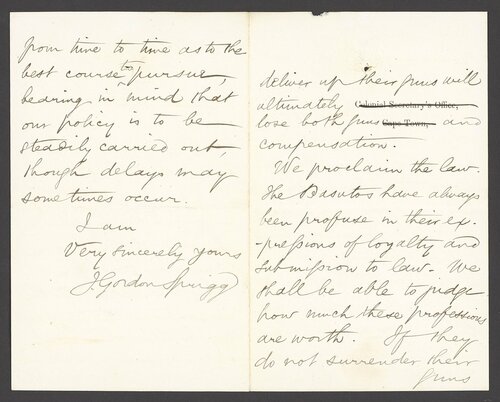 from time to time as to the
best course to pursue,
bearing in mind that
our policy is to be
steadily carried out,
though delays may
sometimes occur.
I am
Very sincerely yours
J Gordon Sprigg
deliver up their guns will
ultimately Colonial Secretary's Office,
lose both guns Cape Town, and
compensation.
We proclaim the law.
The Basutos have always
been profuse in their ex-
-pressions of loyalty and
submission to law. We
shall be able to judge
how much these professions
are worth. If they
do not surrender their
guns